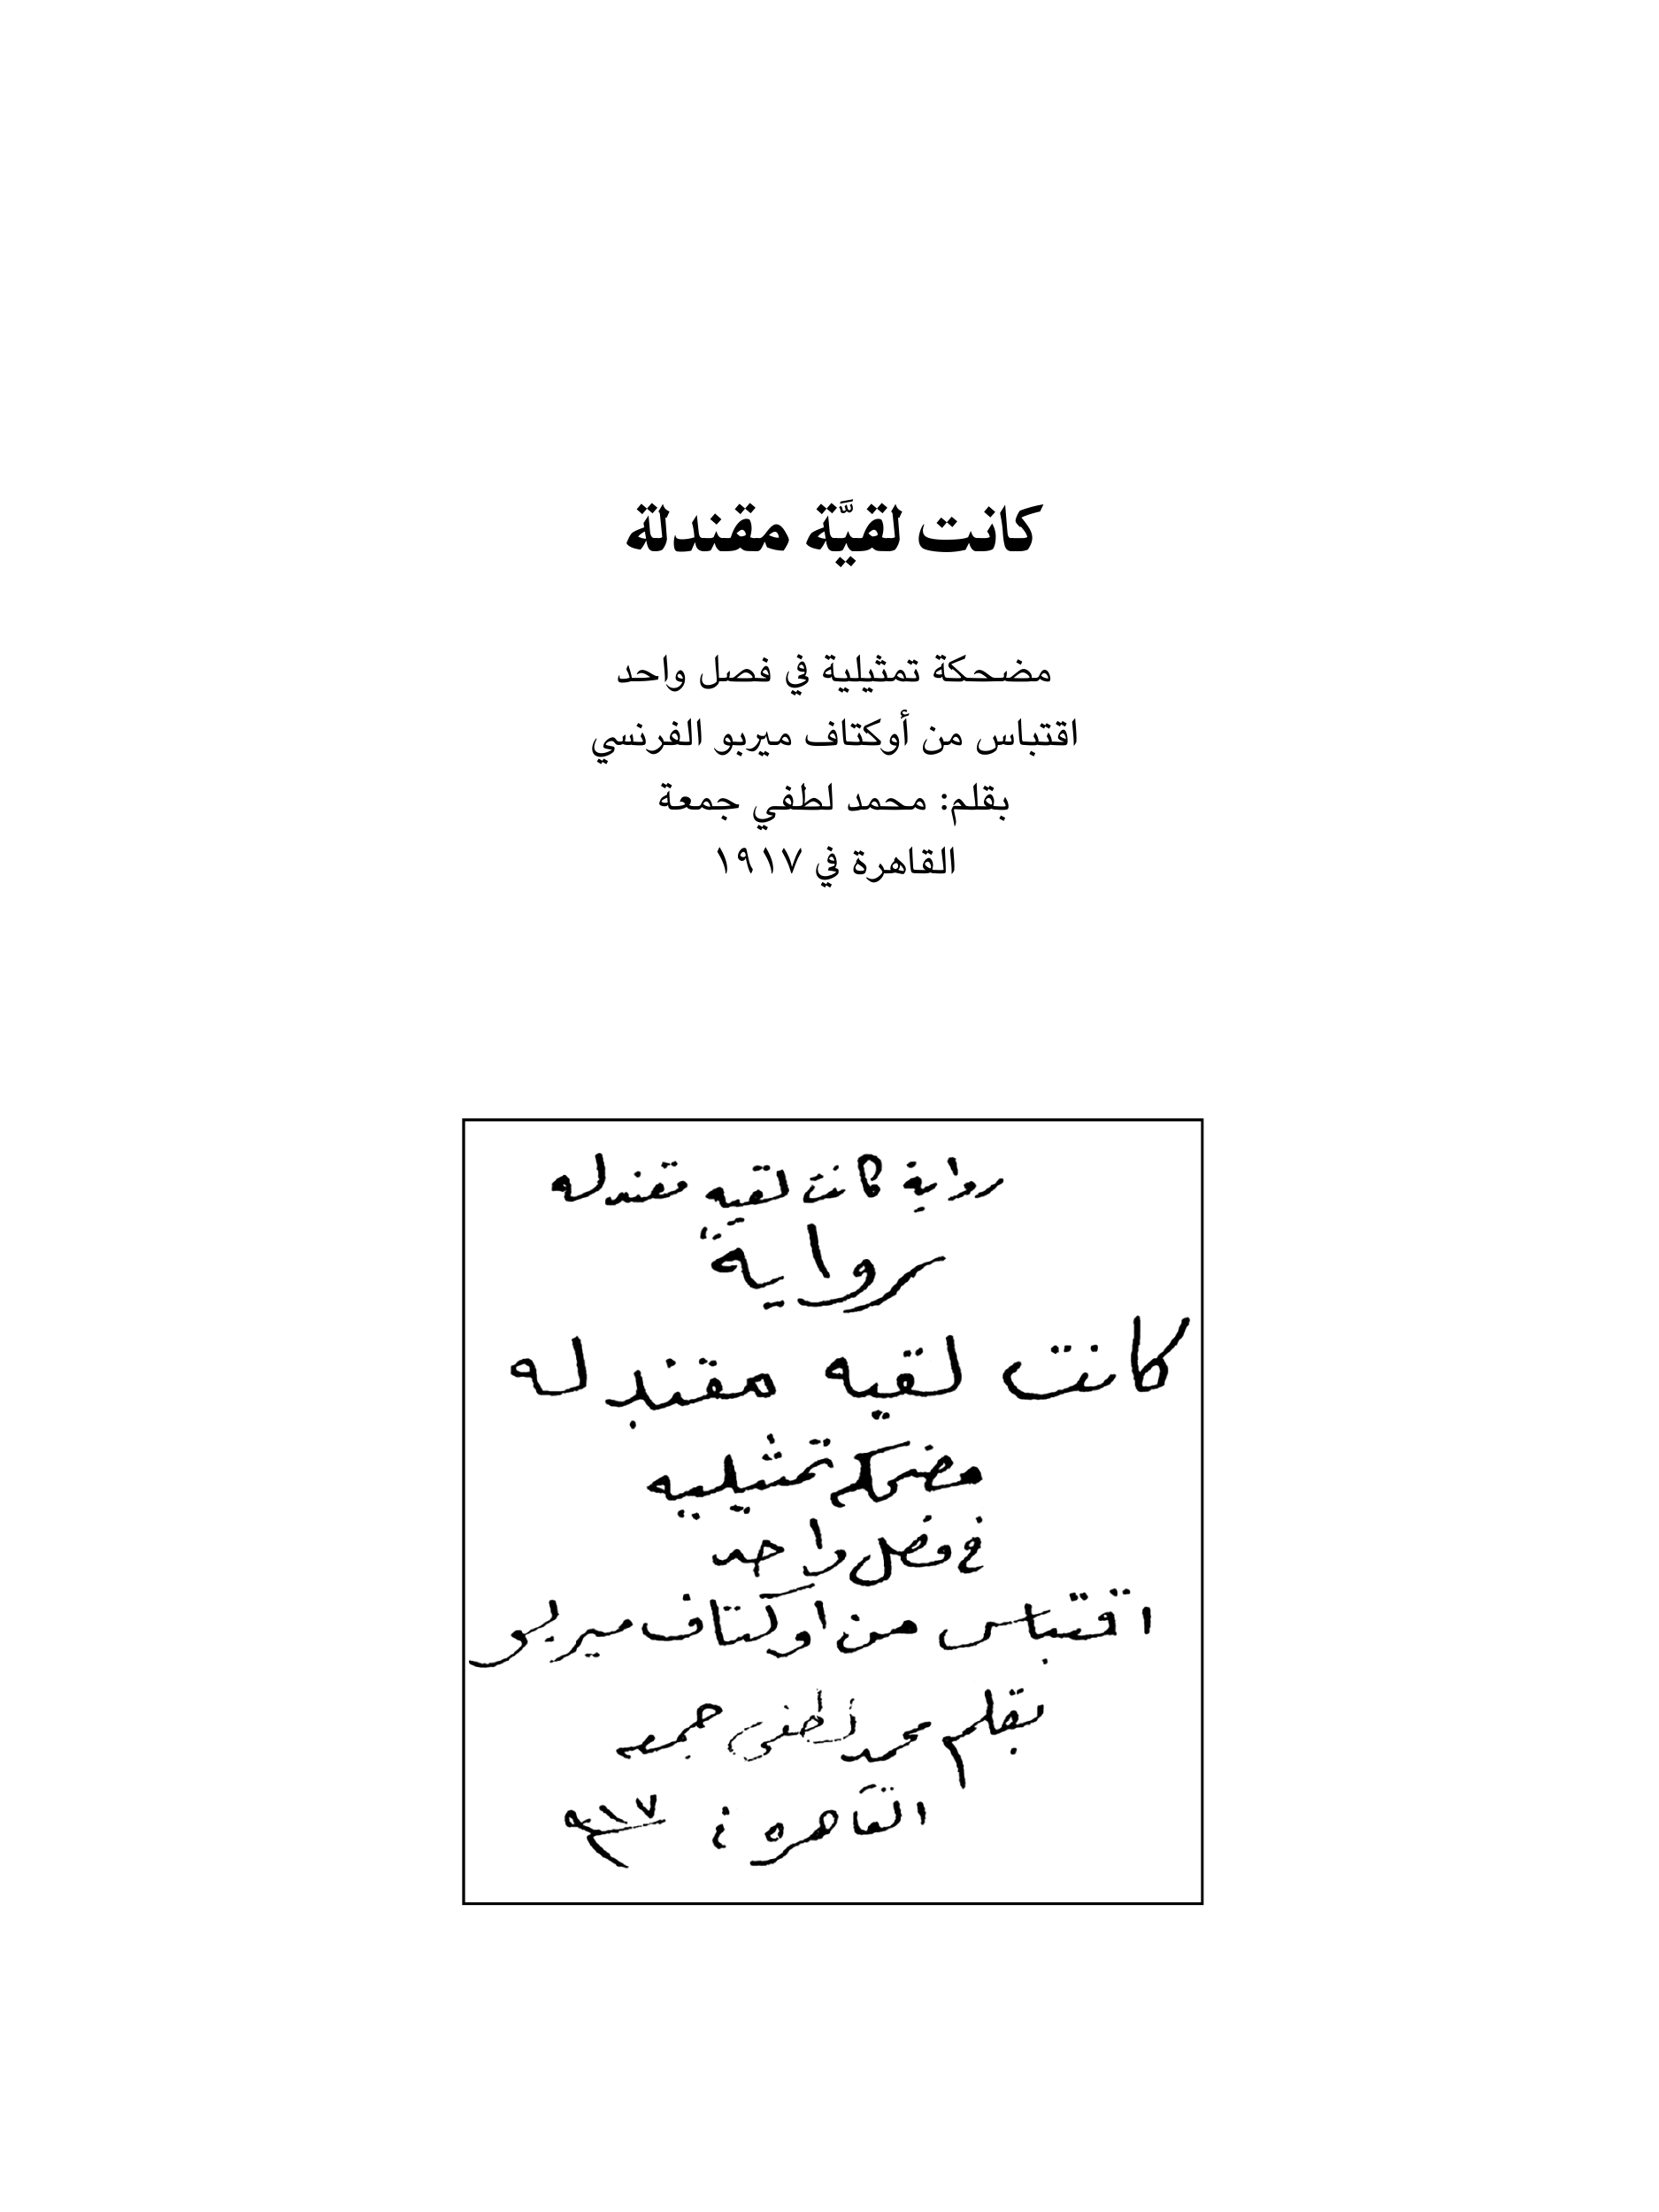 كانت لقيَّة مقندلة
مضحكة تمثيلية في فصل واحد
اقتباس من أوكتاف ميربو الفرنسي
بقلم: محمد لطفي جمعة
القاهرة في ١٩١٧
رواية كانت لقيه مقندله
رواية
كانت لقيه مقندله
مضحكه تمثيليه
في فصل واحد
اقتباس من اوكتاف ميربو
بقلم محمد لطفي جمعه
القاهره في ٩١٧